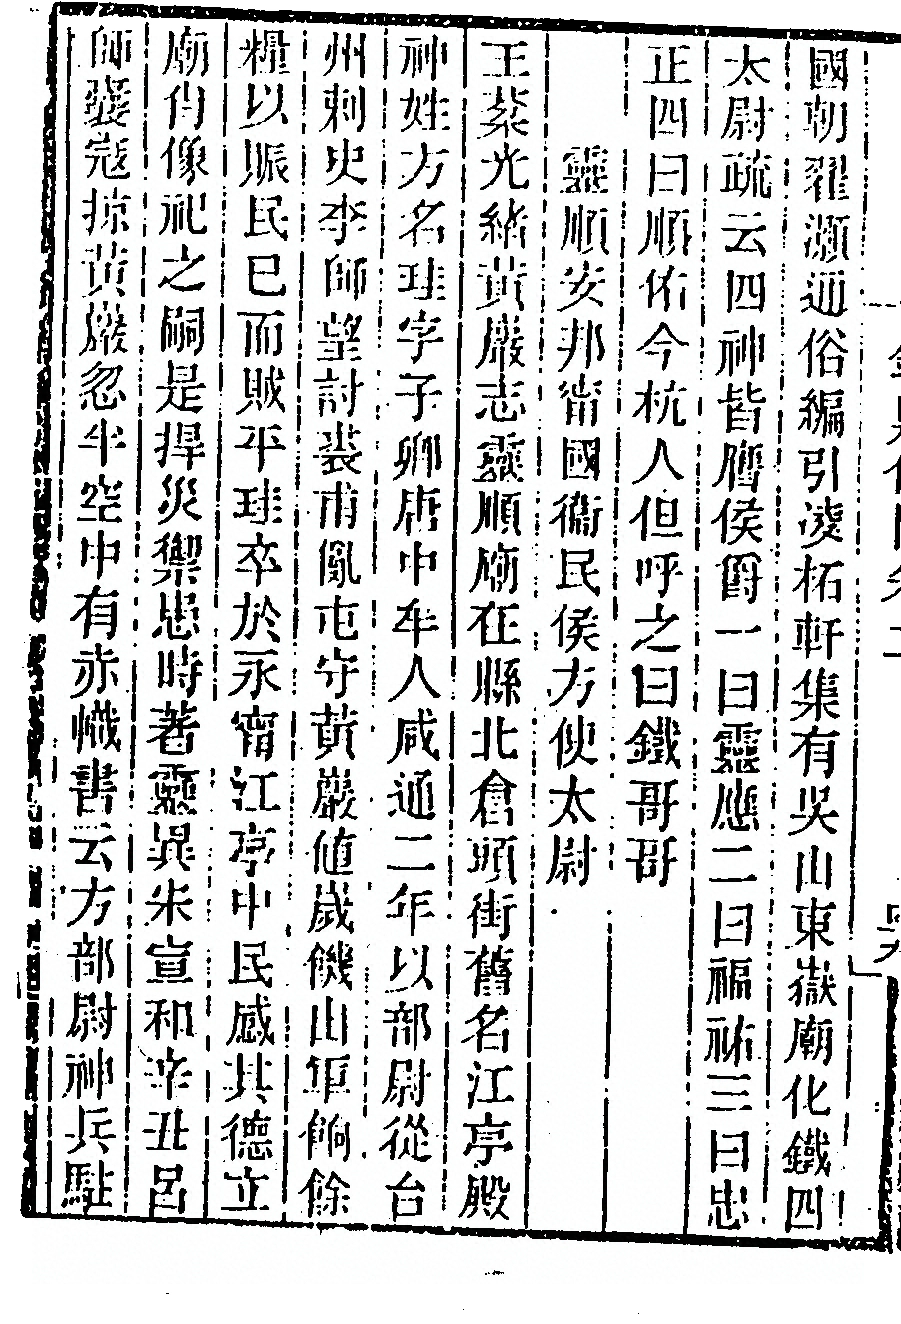 國朝翟灝通俗編引凌柘軒集有吳山東嶽廟化鐵四
太尉疏云四神皆膺侯爵一曰靈應二曰福祐三曰忠
正四曰順佑今杭人但呼之曰鐵哥哥
靈順安邦甯國衞民侯方使太尉
王棻光緒黃巖志靈順廟在縣北倉頭街舊名江亭殿
神姓方名珪字子卿唐中牟人咸通二年以部尉從台
州刺史李師望討裘甫亂屯守黃巖值歲饑出軍餉餘
糧以賑民已而賊平珪卒於永甯江亭中民感其德立
廟肖像祀之嗣是捍災禦患時著靈異宋宣和辛丑呂
師囊寇掠黃巖忽半空中有赤幟書云方部尉神兵駐